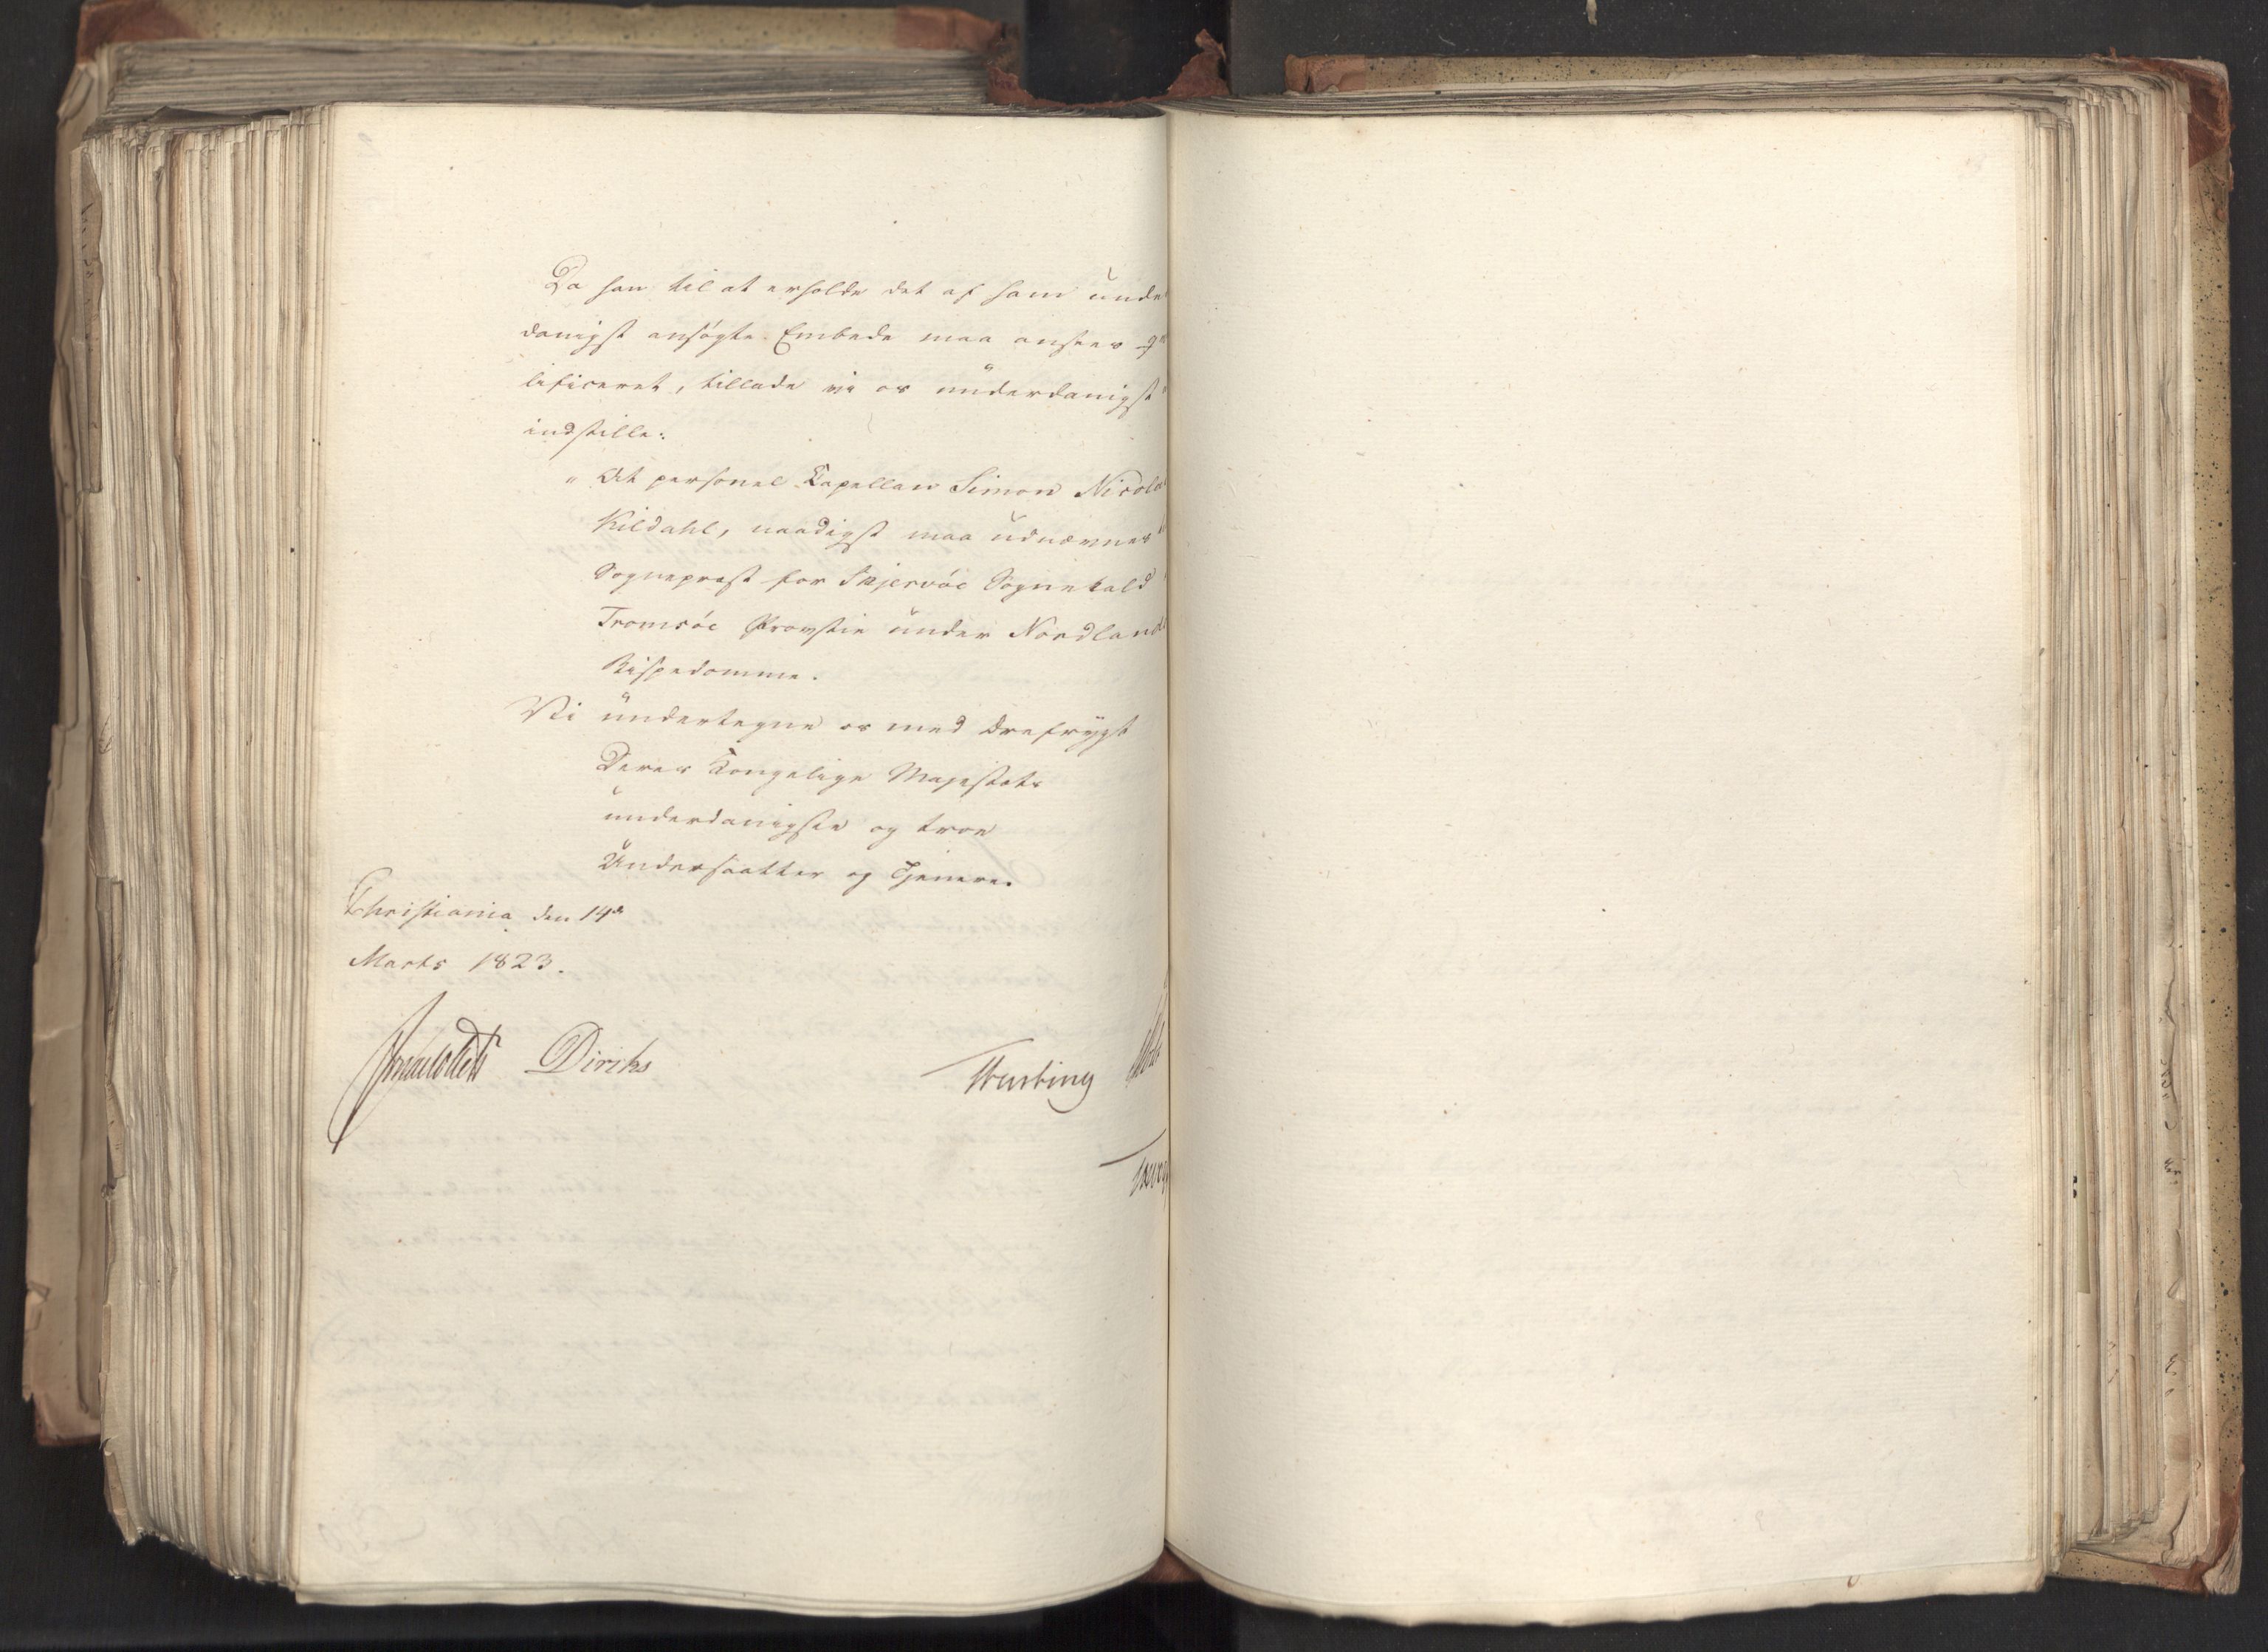 Da han til at erholde det af ham unde
danigst ansögte Embede maa ansees q
lificeret, tillade vi os underdanigst
indstille:
" At personel Capellan Simon Nicola
Kildahl, naadigst maa udnævnes
Sognepræst for Skjervöe Sognekald
Tromsöe Provstie under Nordland
Bispedömme.
Vi undertegne os med Ærefrygt
Deres Kongelige Majestæts
underdanigste og troe
Undersaatter og Tjenere.
Christiania den 14de
Marts 1823.
Diriks